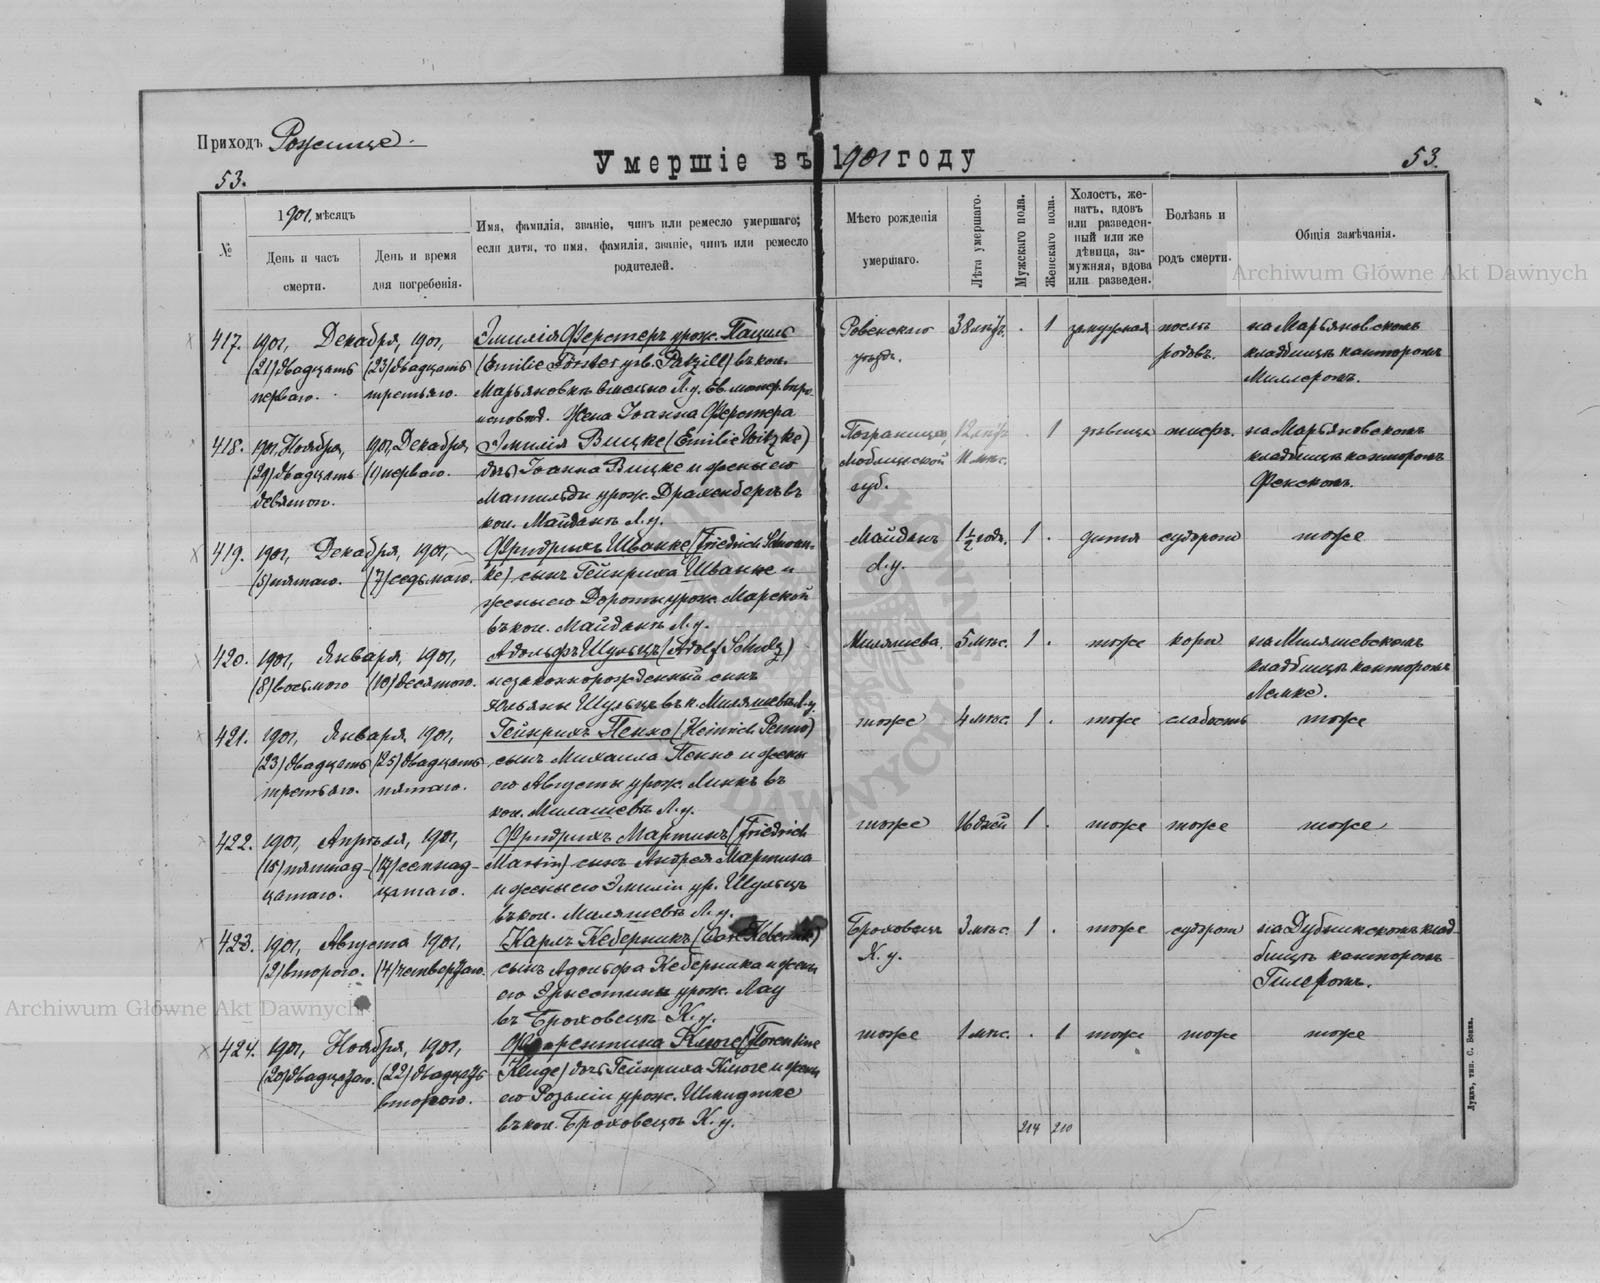 Приходъ Рожище.
Умершіе въ 1901 году
53.
53.
№
1901 мѣсяцъ
День и часъ
смерти.
День и время
дня погребенія.
Имя, фамилія, званіе, чинъ или ремесло умершаго;
если дитя, то имя, фамилія, званіе, чинъ или ремесло
родителей.
Мѣсто рожденія
умершаго.
Лѣта умершаго.
Мужскаго пола.
Женскаго пола.
Холостъ, же-
натъ, вдовъ
или разведен-
ный или же
дѣвица, за-
мужняя, вдова
или разведен.
Болѣзнь и
родъ смерти.
Общія замѣчанія.
417. 1901, Декабря, 1901,
(21) двадцать
перваго.
(23) двадцать
третьяго.
Эмилія Ферстеръ урож. Пациль
(Emilie Förster geb. Patzill) въ кол.
Марьяновкѣ
исповѣд. Жена Іоанна Ферстера
Ровенскаго
уѣзд.
38 лѣтъ. . 1 замужняя послѣ
родовъ.
на Марьяновскомъ
кладбищѣ канторомъ
Миллеромъ.
418. 1901, Ноября,
(29) двадцать
девятого.
1901, Декабря,
(1) перваго.
Эмилія Вицке (Emilie Witzke)
дочь Іоанна Вицке и жены его
Матильды урож. Драхенбергъ въ
кол. Майданъ Л. у.
Люблинской
губ.
12 лѣтъ
11 мѣс.
. 1 дѣвица тифъ.
на Марьяновскомъ
кладбищѣ канторомъ
Фекскомъ.
419. 1901, Декабря, 1901,
(5) пятаго. (7) седьмаго.
Фридрихъ Шванке (Friedrich Schwan-
ke) сынъ Гейнриха Шванке и
жены его Доротеи урож. Марской
въ кол. Майданъ Л. у.
Майданъ
Л. у.
1 1/2 годъ. 1 . дитя судорои тоже
420. 1901, Января, 1901,
(8) восьмого (10) десятого.
Адольфъ Шульцъ (Adolf Schulz)
незаконнорожденный сынъ
Юльяны Шульцъ въ к. Миляшевъ Л. у.
Миляшева. 5 мѣс. 1 . тоже корь
на Миляшевскомъ
кладбищѣ канторомъ
Лемке.
421. 1901, Января, 1901,
(23) двадцать
третьяго.
(25) двадцать
пятаго.
Гейнрихъ Пенно (Heinrich Penno)
сынъ Михаила Пенно и жены
его Августы урож. Линкъ въ
кол. Милашевъ Л. у.
тоже 4 мѣс. 1 . тоже слабость тоже
422. 1901, Апрѣля, 1901,
(15) пятнад-
цатаго.
(17) семнад-
цатаго.
Фридрихъ Мартинъ (Friedrich
Martin) сынъ Андрея Мартина
и жены его Эмиліи ур. Шульцъ
въ кол. Миляшевъ Л. у.
тоже 16 дней 1 . тоже тоже тоже
423. 1901, Августа 1901,
(2) второго. (4) четвертаго.
Карлъ Кеберникъ (Carl Kebernik)
сынъ Адольфа Кеберника и жены
его Эрнестины урож. Лау
въ Броховецъ К. у.
Броховецъ
К. у.
3 мѣс. 1 . тоже судорои
на Дубникскомъ клад-
бищѣ канторомъ
Гилеромъ.
424. 1901, Ноября, 1901,
(20) двадцатаго. (22) двадцать
второго.
Флорентина Клюге (Florentine
Kluge) дочь Гейнриха Клюге и жены
его Розаліи урож. Шмидтке
въ кол. Броховецъ К. у.
тоже 1 мѣс. . 1 тоже тоже тоже
214 210
Луцкъ, тип. С. Бекка.
Archiwum Główne Akt Dawnych
Archiwum Główne Akt Dawnych